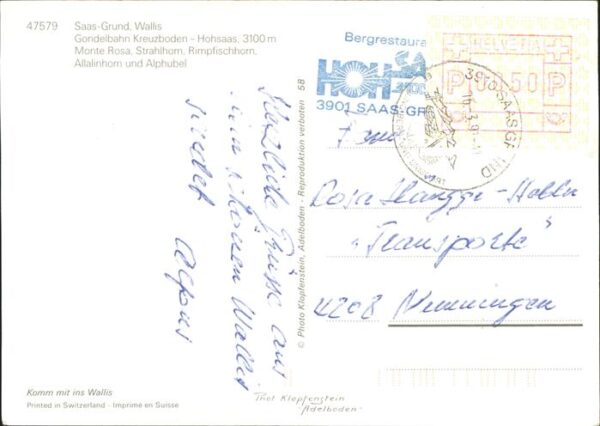 47579 Saas-Grund, Wallis
Gondelbahn Kreuzboden - Hohsaas, 3100 m
Monte Rosa, Strahlhorn, Rimpfischhorn,
Allalinhorn und Alphubel
Herzliche Grüsse aus
dem schönen Wallis
sendet
Alfons
58
© Photo Klopfenstein, Adelboden - Reproduktion verboten
Bergrestaura
HOH
SA
3100
3901 SAAS-GR
HELVETIA
P
P
SAAS-GRUND
Rosa Hänggi-Holler
"Transporte"
4208 Nunningen
Komm mit ins Wallis
Printed in Switzerland - Imprimé en Suisse
Phot Klopfenstein
Adelboden